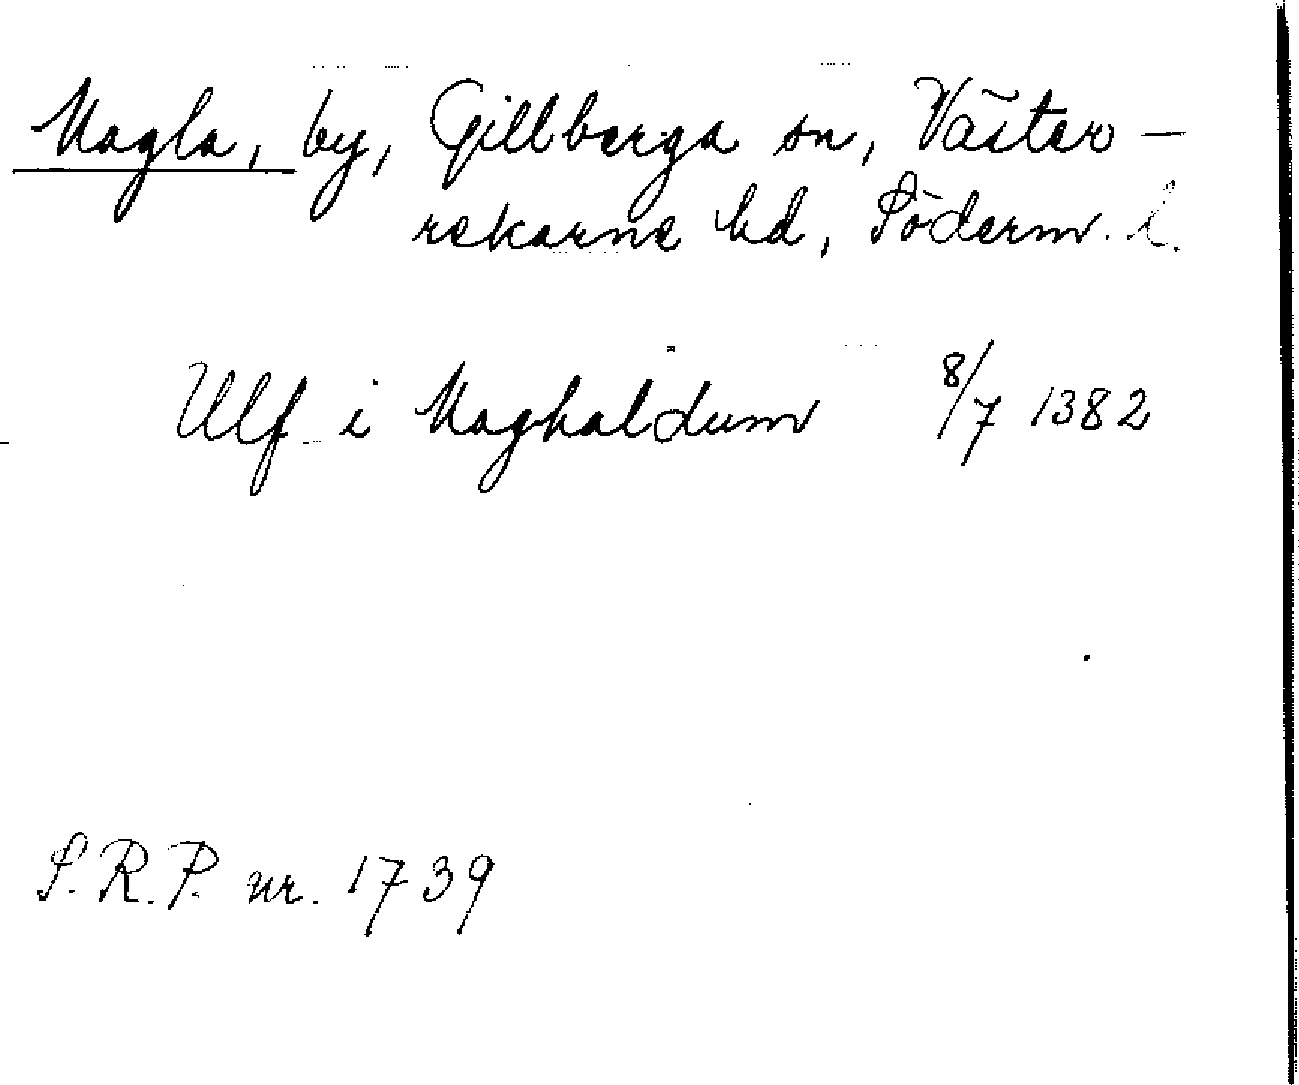 Magla, by, Gillberga sn, Väster-
rekarne hd, Söderm. l.
Ulf i Maghaldum 8/7 1382
S.R.P. nr. 1739